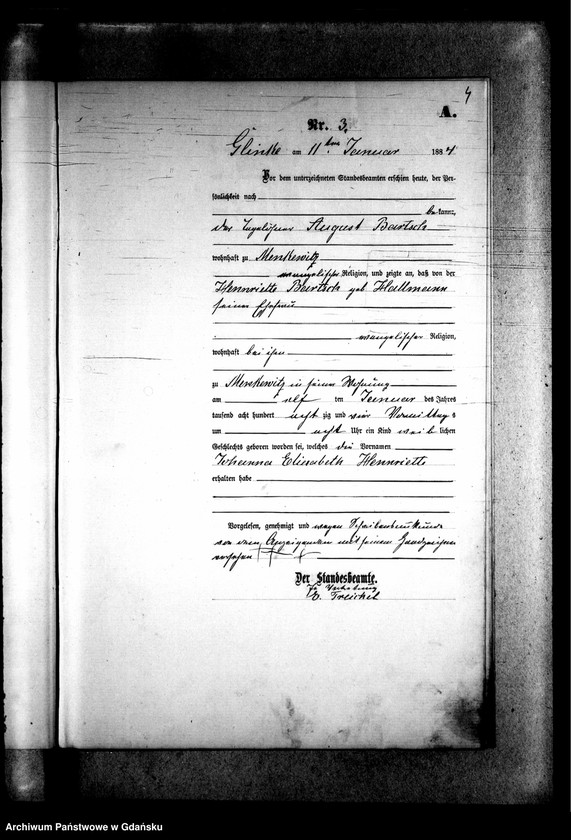 4
A.
Nr. 3.
Glinke am 11ten Januar 1884.
Vor dem unterzeichneten Standesbeamten erschien heute, der Per-
sönlichkeit nach
bekannt,
der August Bartsch
wohnhaft zu Menkewitz
evangelischer Religion, und zeigte an, daß von der
Hennriette Bartsch geb Hallmann
seiner Ehefrau
evangelischer Religion,
wohnhaft bei ihm
zu Menkewitz in seiner Wohnung
am elf ten Januar des Jahres
tausend acht hundert acht zig und vier Vormittag s
um acht Uhr ein Kind weib lichen
Geschlechts geboren worden sei, welches die Vornamen
Johanna Elisabeth Hennriette
erhalten habe
Vorgelesen, genehmigt und wegen
von dem Anzeigenden mit seinem Handzeichen
versehen †††
Der Standesbeamte.
In Vertretung
Treichel
Archiwum Państwowe w Gdańsku